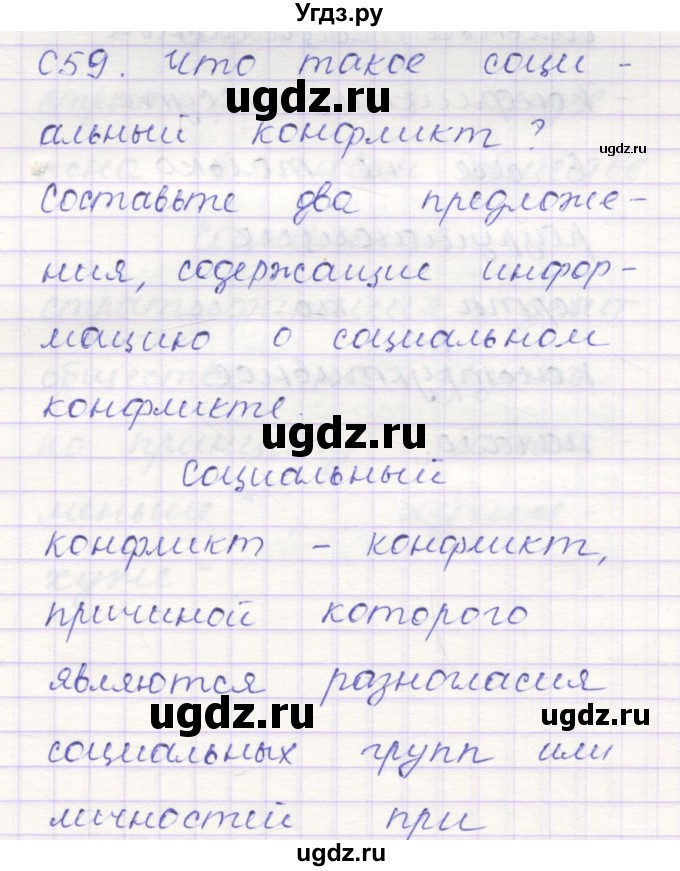 Угдз.ру
С59. Что такое соци -
ugdz.ru
альный конфликт?
ugdz.ru
Составьте два предложе -
ния, содержащие инфор -
мацию о социальном
конфликте.
ugdz.ru
Социальный
конфликт - конфликт,
причиной которого
являются разногласия
ugdz.ru
ugdz.ru
социальных групп или
личностей при
ugdz.ru